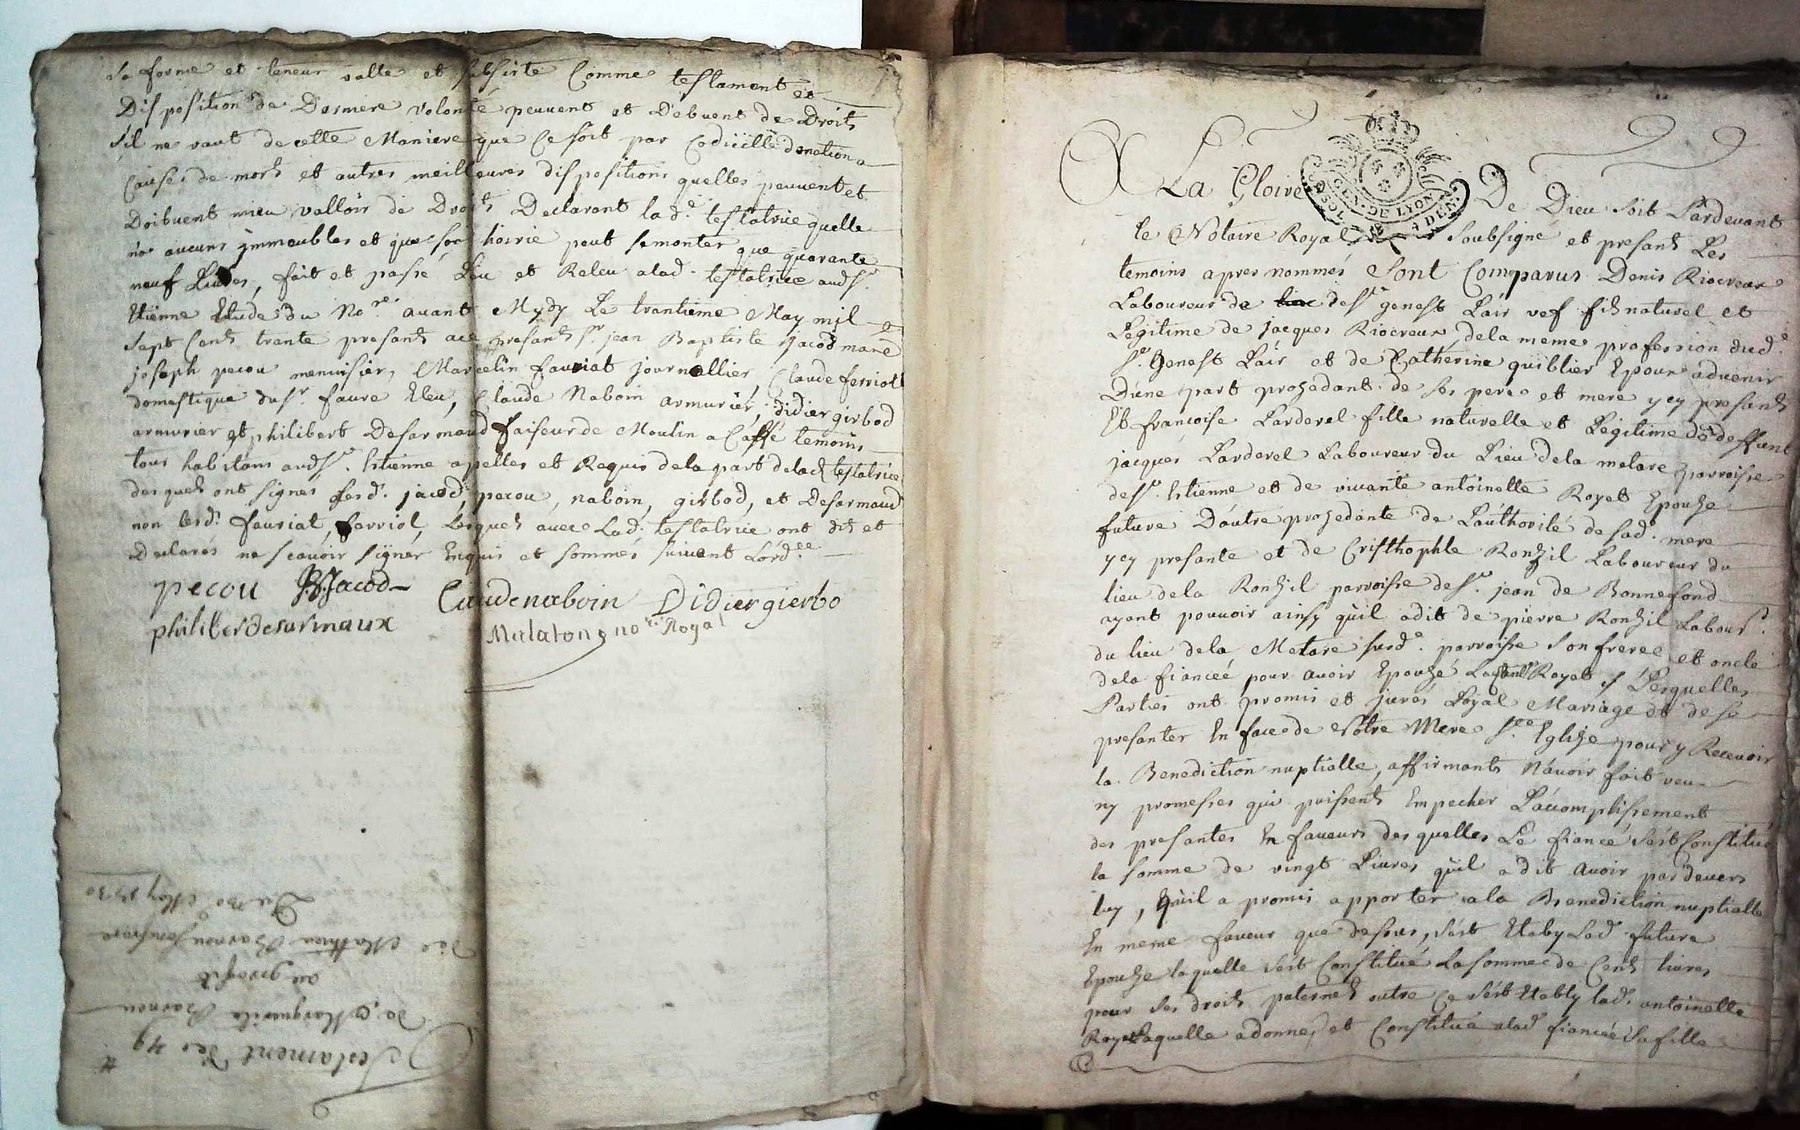 Sa forme et teneur valle et subsiste Comme testament et
Disposition de Derniere volonté peuvent et Debuent de Droits
S'il ne vaut de cette Maniere que Ce soit par Codicille donation a
Cause de mort et autres meilleures dispositions quelles peuvent et
Doibuent mieu valloir de Droit Declarant lad.e testatrice quelle
n'a aucuns jmmeubles et que son hoirie peut se monter que quarante
neuf Livres, fait et passé Leu et Releu alad. testatrice aud St.
Etienne Etude du No.re avant Mydy Le trantieme May mil
Sept Cent trante presant sr. jean Baptiste jacod
joseph pecou menuisier, Marcelin fauriat journallier, Claude ferriol
domestique du sr. faure Eleu, Claude Naboin armurier, didier girbod
armurier et philibert Desarmaud faiseur de Moulin a Caffé temoins
tous habitans aud St. Etienne apelles et Requis de la part de lad. testatrice
des quels ont signes lesd. jacod pecou, naboin, girbod, et Desarmaud
non lesd. fauriat, ferriol, Lesquels avec Lad. testatrice ont dit et
Declarés ne scavoir signer Enquis et sommés suivant L'ord.ce
pecou JB Jacod Claude naboin Didier gierbo
philiber desarmaux Mulaton no.re Royal
Testament des 49 #
de Marguerite Barnou
au proffit
de Mathieu Barnou son frere
Du 30 May 1730
A La Gloire De Dieu soit Pardevant
GEN. DE LYON
le Notaire Royal soubsigne et presants Les
temoins apres nommés Sont Comparus Denis Riocreux
Laboureur de de St. genest Lair vef fils naturel et
Legitime de jacques Riocreux de la meme profession dud.
St. Genest Lair et de Catherine quiblier Epoux advenir
D'une part prozedant de ses pere et mere ycy presents
Et francoise Larderel fille naturelle et Legitime de deffunt
jacques Larderel Laboureur du Lieu de la metare parroisse
de St. Etienne et de vivante antoinette Royet Epouze
future D'autre prozedante de L'authorité de sad. mere
ycy presante et de Cristhophle Ronzil Laboureur du
lieu de la Ronzil parroisse de St. jean de Bonnefond
ayant pouvoir ainsy qu'il a dit de pierre Ronzil Labour.
du lieu de la Metare susd.e parroisse son frere et oncle
de la fiancéé pour avoir Epouzé La Royet Lesquelles
Parties ont promis et jurés Loyal Mariage et de se
presanter En face de Nôtre Mere Ste. Eglize pour y Recevoir
la Benediction nuptialle, affirmants N'avoir fait veu
ny promesses qui puissent Empecher L'accomplissement
des presantes En faveurs des quelles Le fiancé s'est Constitué
la somme de vingt Livres qu'il a dit avoir pardevers
luy, qu'il a promis apporter a la Benediction nuptialle
En meme faveur que dessus, s'est Etably Lad. future
Epouze laquelle s'est Constitué La somme de Cent livres
pour ses droits paternels outre Ce s'est Etably lad. antoinette
Royet Laquelle a donné et Constitué alad. fiancéé sa fille